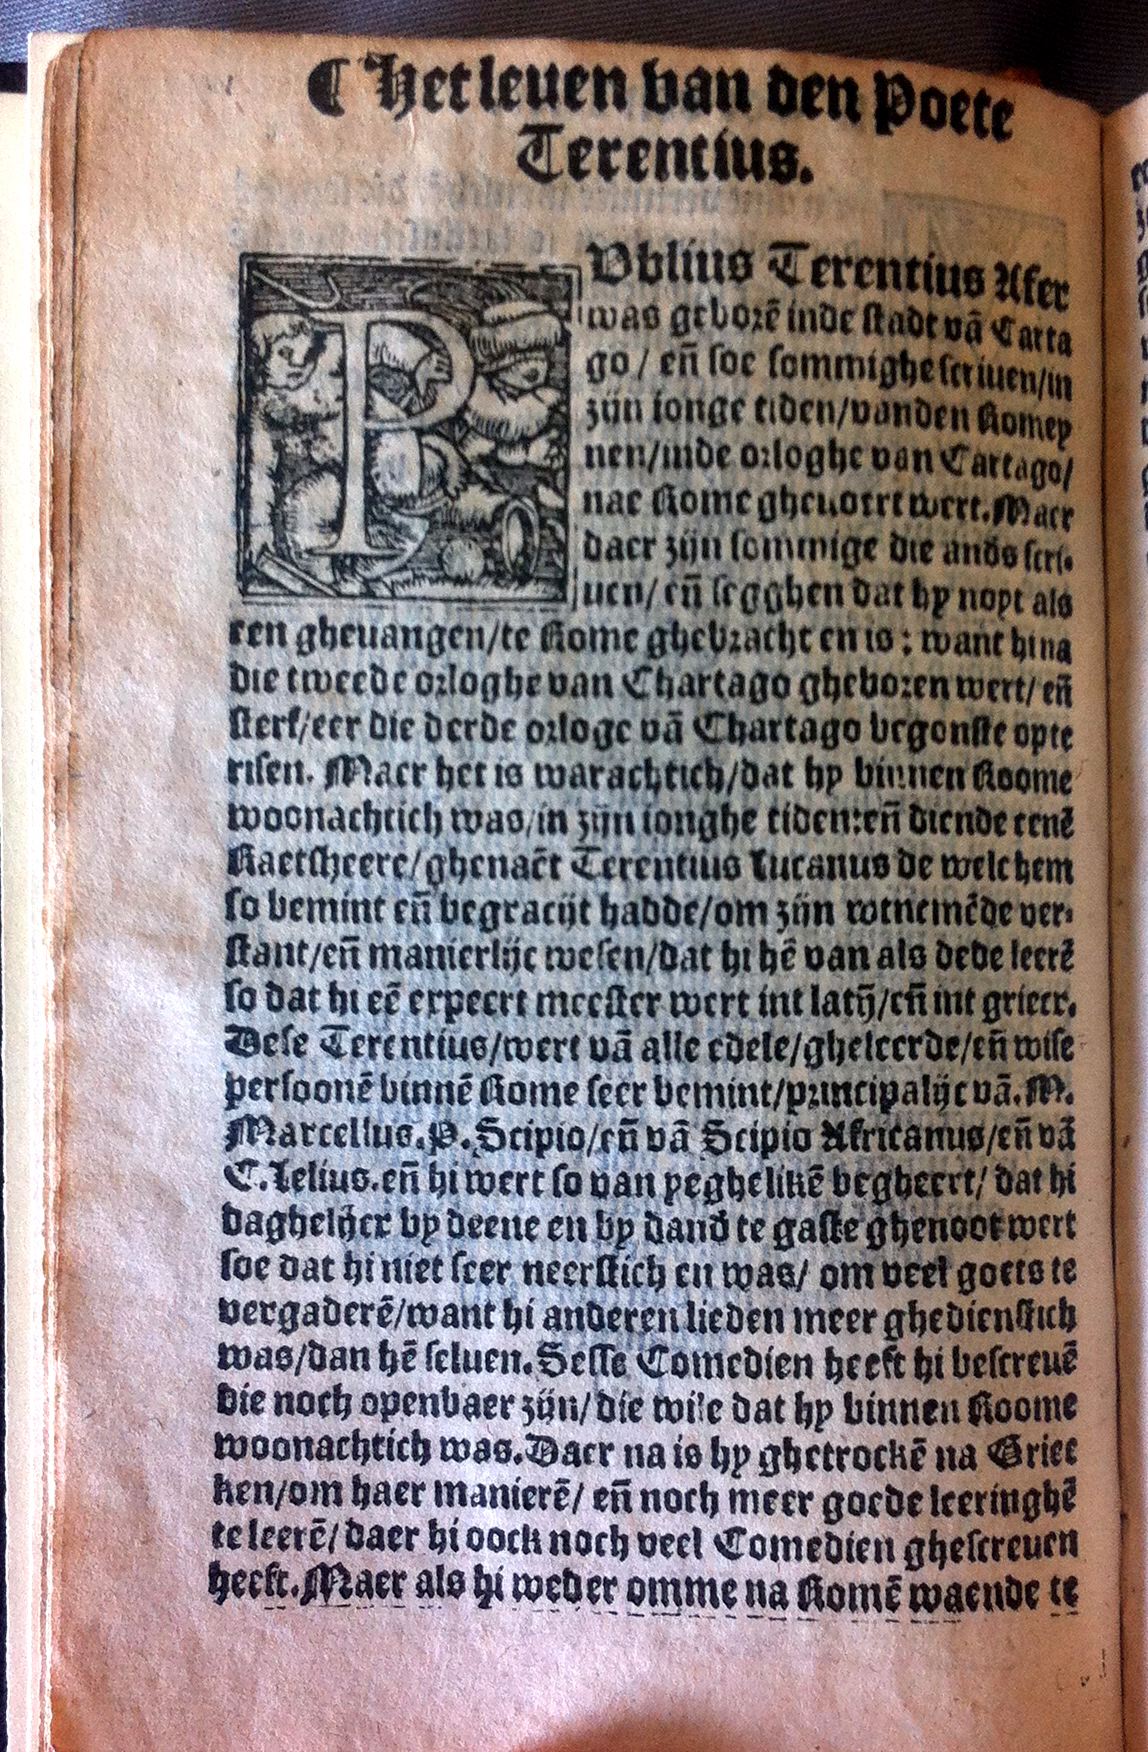 ⸿ Het leuen van den Poete
Terentius.
PUblius Terentius Afer
was geborē inde stadt vā Carta
go/ eñ soe sommighe scriuen/in
zijn ionge tiden/vanden Romey
nen/inde orloghe van Cartago/
nae Rome gheuoert wert. Maer
daer zijn sommige die anđs scri-
uen/ eñ segghen dat hy noyt als
een gheuangen/te Rome ghebracht en is: want hi na
die tweede orloghe van Chartago gheboren wert/ eñ
sterf/eer die derde orloge vā Chartago begonste opte
risen. Maer het is warachtich/dat hy binnen Roome
woonachtich was/in zijn ionghe tiden:eñ diende eenē
Raetsheere/ghenaēt Terentius Lucanus de welc hem
so bemint eñ begracijt hadde/om zijn wtnemēde ver-
stant/eñ manierlijc wesen/dat hi hē van als dede leerē
so dat hi eē expeert meester wert int latij̄/eñ int griecx.
Dese Terentius/wert vā alle edele/gheleerde/eñ wise
persoonē binnē Rome seer bemint/principalijc vā. M.
Marcellus. P. Scipio/eñ vā Scipio Africanus/eñ vā
C. Lelius. eñ hi wert so van yeghelikē begheert/ dat hi
daghelijcx by deene en by danđ te gaste ghenoot wert
soe dat hi niet seer neerstich en was/ om veel goets te
vergaderē/want hi anderen lieden meer ghedienstich
was/dan hē seluen. Sesse Comedien heeft hi bescreuē
die noch openbaer zijn/ die wile dat hy binnen Roome
woonachtich was. Daer na is hy ghetrockē na Griec
ken/om haer manierē/ eñ noch meer goede leeringhē
te leerē/ daer hi oock noch veel Comedien ghescreuen
heeft. Maer als hi weder omme na Romē waende te